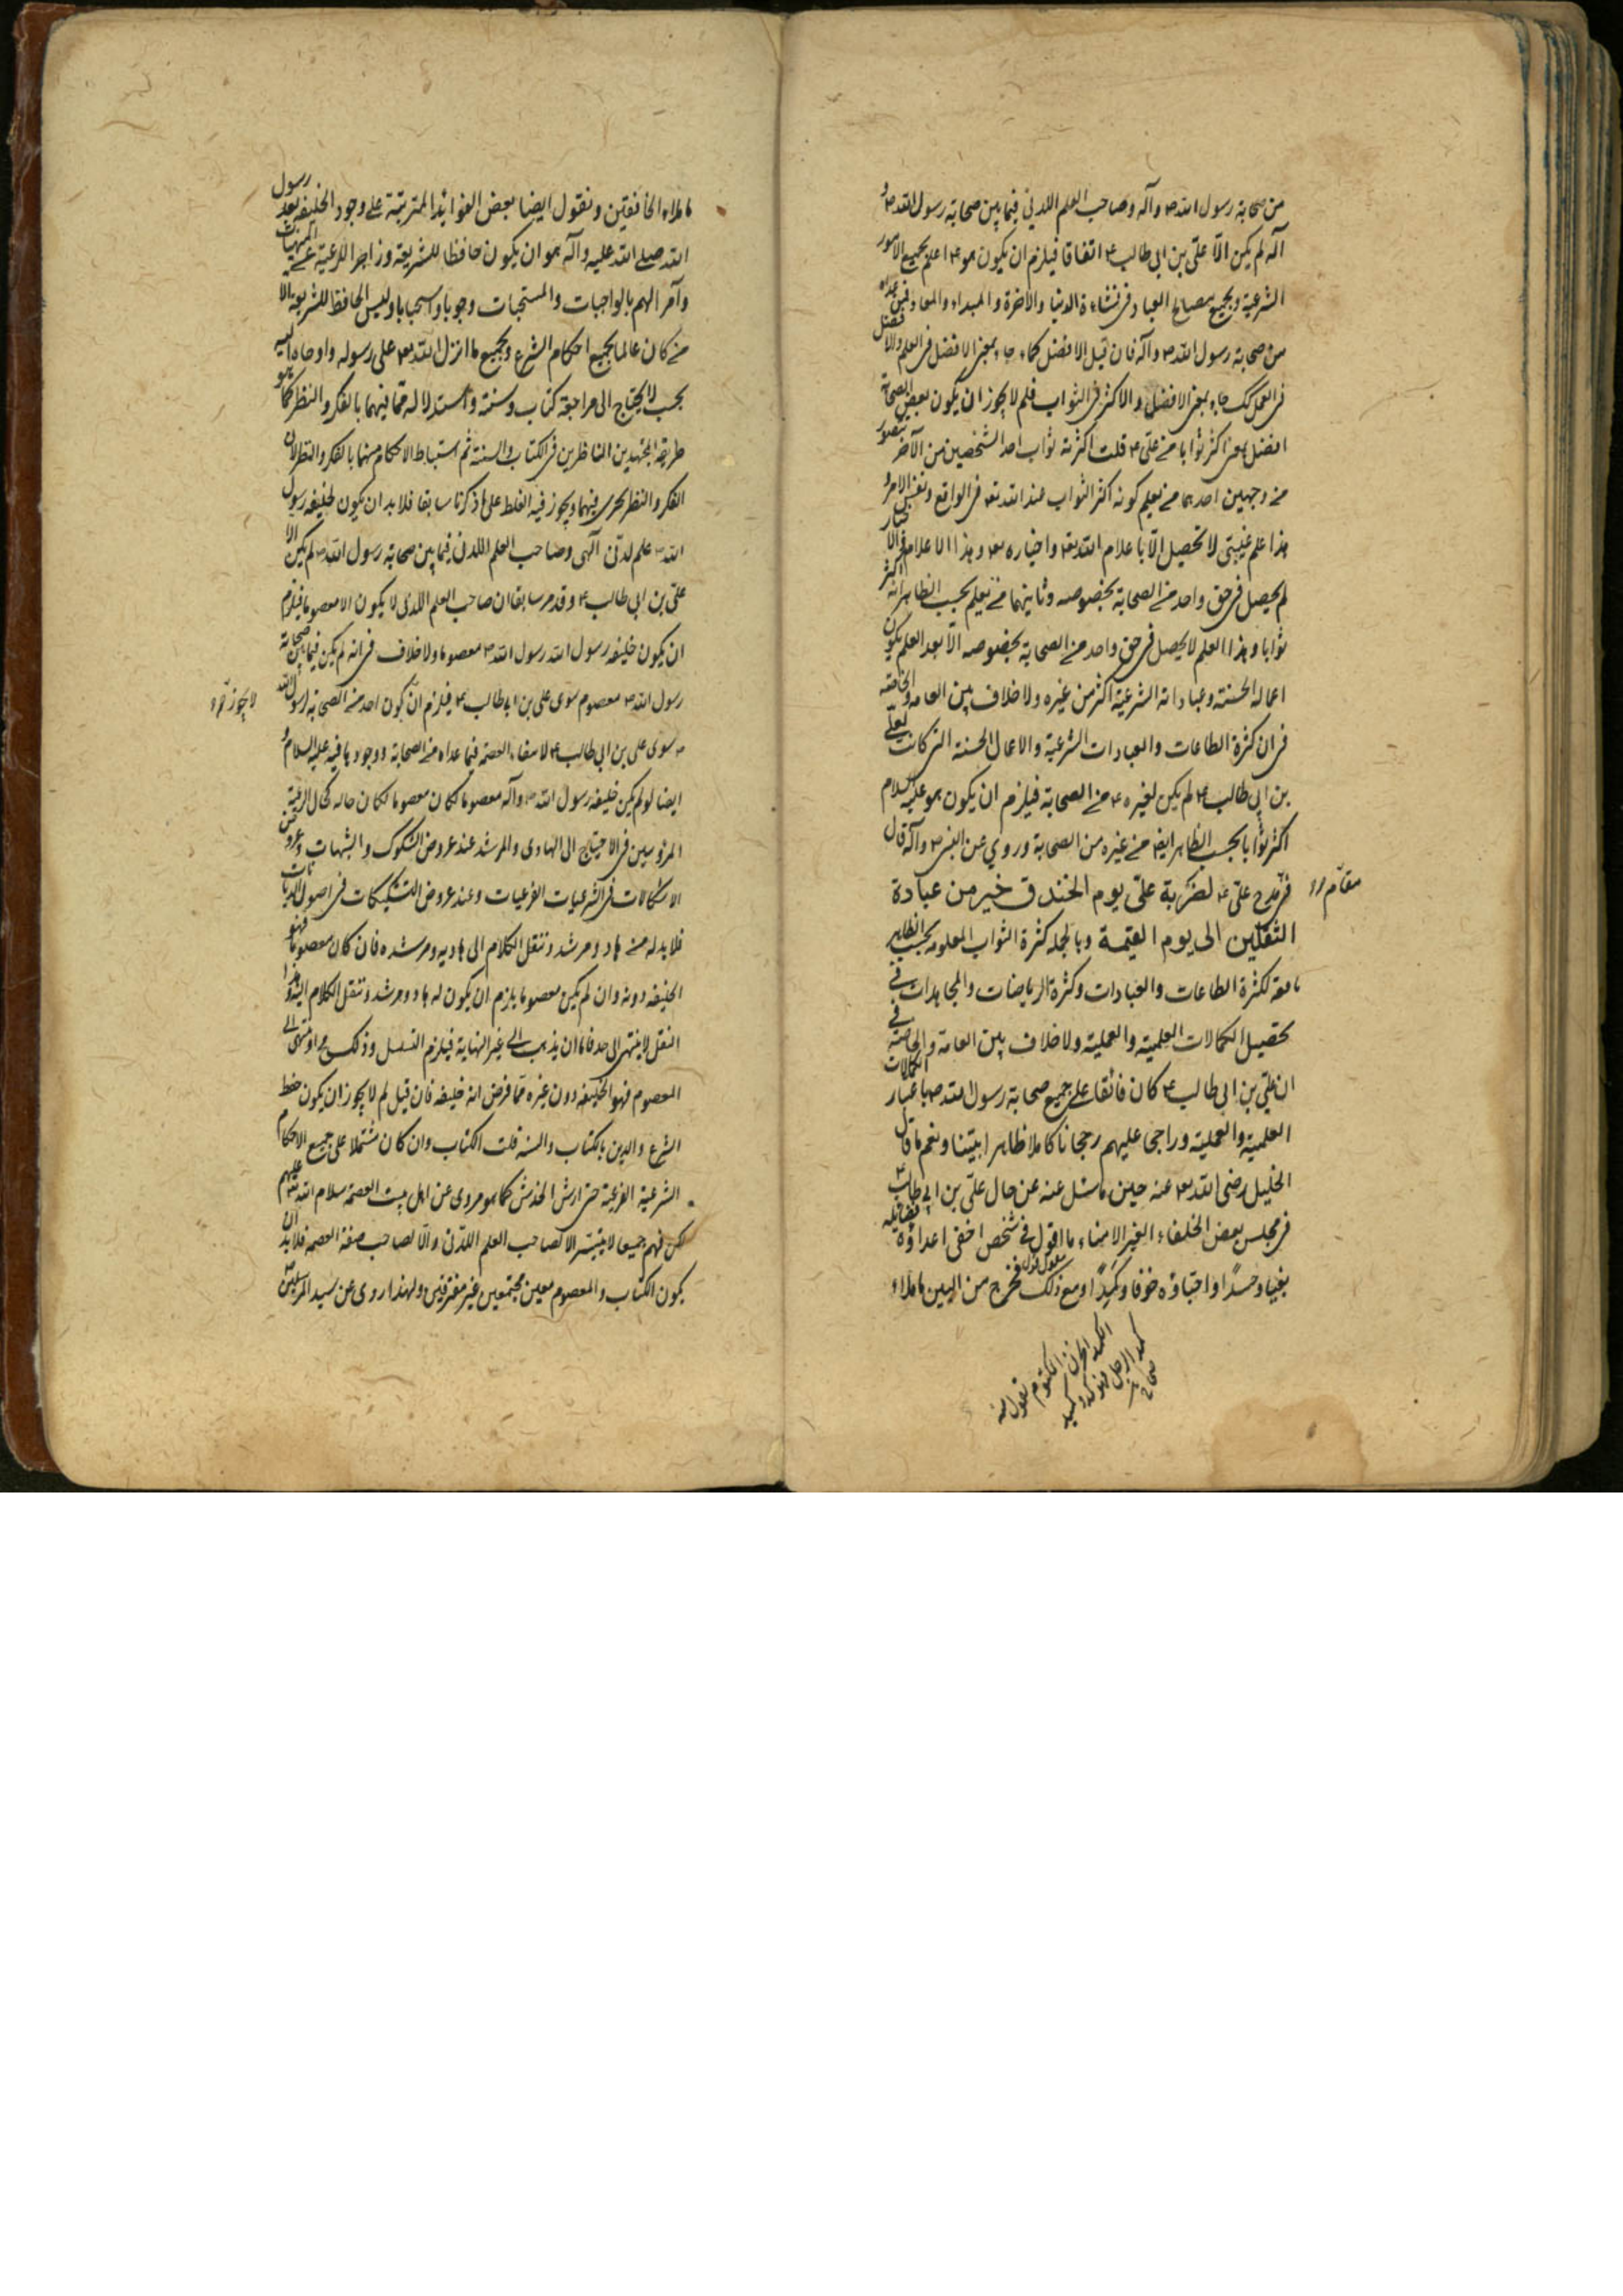 من صحابة رسول الله ص وآله وصاحب العلم اللدني فيما بين صحابة رسول الله ص و
آله لم يكن الّا علىّ بن ابى طالب ع اتفاقا فيلزم ان يكون هو ع اعلم بجميع الامور
الشرعية وبجميع مصالح العباد فى نشاءة الدنيا والاخرة والمبداء والمعاد فمن عداه
من صحابة رسول الله ص وآله فان قيل الافضل كما جاء بمعنى الافضل فى العلم والافضل
فى العمل كك جاء بمعنى الافضل والاكثر فى الثواب فلم لا يجوز ان يكون بعض الصحابة
افضل بمعنى اكثر ثوابا من على ع قلت اكثرية ثواب احد الشخصين من الآخر يتصور
من وجهين احدهما من يعلم كونه اكثر الثواب عند الله تع فى الواقع ونفس الامر و
هذا علم غيبىّ لا تحصيل الّا باعلام الله تع واخباره تع وهذا الاعلام والاخبار
لم يحصل فى حق واحد من الصحابة بخصوصه وثانيهما من يعلم بحسب الظاهر انه اكثر
ثوابا وهذا العلم لا يحصل فى حق واحد من الصحابة بخصوصه الّا بعد العلم بكون
اعماله الحسنة وعباداته الشرعية اكثر من غيره ولا خلاف بين العامه والخاصه
فى ان كثرة الطاعات والعبادات الشرعية والاعمال الحسنة التى كانت لعلى
بن ابى طالب ع لم يكن لغيره ع من الصحابة فيلزم ان يكون هو عليه السلام
اكثر ثوابا بحسب الظاهر ايضا من غيره من الصحابة وروي عن النبى ص وآله قال
فى مدح على ع لضربة علىّ يوم الخندق خير من عبادة
الثقلين الى يوم القيمة وبالجمله كثرة الثواب المعلومه بحسب الظاهر
تابعة لكثرة الطاعات والعبادات وكثرة الرياضات والمجاهدات فى
تحصيل الكمالات العلمية والعملية ولا خلاف بين العامه والخاصة فى
ان علىّ بن ابى طالب ع كان فائقا على جميع صحابة رسول الله ص باعتبار الكمالات
العلمية والعملية وراجحا عليهم رجحانا كاملا ظاهرا بيّنا ونعم ما قال
الخليل رضى الله تع عنه حين ما سئل عنه عن حال علىّ بن ابى طالب ع
فى مجلس بعض الخلفاء الغير الامناء ما اقول فى شخص اخفى اعداؤه فضائله
بغيا وحسدًا واحبّاؤه خوفا وكمدًا ومع ذلك فخرج من البين ما ملاء
مقام
الكمد الحزن المكتوم تقول منه
كمد الرجل فهو كمد وكميد
صحاح
ما ملاء الخافقين ونقول ايضا بعض الفوائد المترتبة على وجود الخليفه بعد رسول
الله صلى الله عليه وآله هو ان يكون حافظا للشريعة وزاجرا للرعية عن المنهيات
وآمرا لهم بالواجبات والمستحبات وجوبا واستحبابا وليس الحافظ للشريعة الا
من كان عالما بجميع احكام الشرع وبجميع ما انزل الله تع على رسوله واوحاه اليه
بحيث لا يحتاج الى مراجعة كتاب وسنة واستدلاله مما فيهما بالفكر والنظر كما هو
طريقة المجتهدين الناظرين فى الكتاب والسنة ثم استنباط الاحكام منهما بالفكر والنظر لان
الفكر والنظر يجرى فيهما ويجوز فيه الغلط على ما ذكرنا سابقا فلا بد ان يكون لخليفه رسول
الله ص علم لدنّى الهى وصاحب العلم اللدنى فيما بين صحابة رسول الله ص لم يكن الّا
على بن ابى طالب ع وقد مر سابقا ان صاحب العلم اللدنى لا يكون الا معصوما فيلزم
ان يكون خليفه رسول الله رسول الله ص معصوما ولا خلاف فى انه لم يكن فيما بين صحابة
رسول الله ص معصوم سوى على بن ابى طالب ع فيلزم ان يكون احد من الصحابة لرسول الله
ص سوى على بن ابى طالب ع لانتفاء العصمة فيما عداه من الصحابة ووجودها فيه عليه السلام و
ايضا لو لم يكن خليفه رسول الله ص وآله معصوما لكان حاله كحال الرعية
المرؤسين فى الاحتياج الى الهادى والمرشد عند عروض الشكوك والشبهات وعروض
الاشكالات فى الشرعيات الفرعيات وعند عروض التشكيكات فى اصول الديانات
فلا بد له من هاد ومرشد وننقل الكلام الى هاديه ومرشده فان كان معصوما فهو
الخليفه دونه وان لم يكن معصوما يلزم ان يكون له هاد ومرشد وننقل الكلام اليه وهذا
النقل لا ينتهى الى حد فاما ان يذهب الى غير النهاية فيلزم التسلسل وذلك مح او ينتهى الى
المعصوم فهو الخليفه دون غيره مما فرض انه خليفه فان قيل لم لا يجوز ان يكون حفظ
الشرع والدين بالكتاب والسنه قلت الكتاب وان كان مشتملا على جميع الاحكام
الشرعية الفرعية حتى ارش الخدش كما هو مروى عن اهل بيت العصمة سلام الله عليهم
لكن فهم جميعها لا يتيسر الا لصاحب العلم اللدّنى والّا لصاحب صفة العصمه فلا بد ان
يكون الكتاب والمعصوم معين مجتمعين غير مفترقين ولهذا روى عن سيد المرسلين
لا يجوز